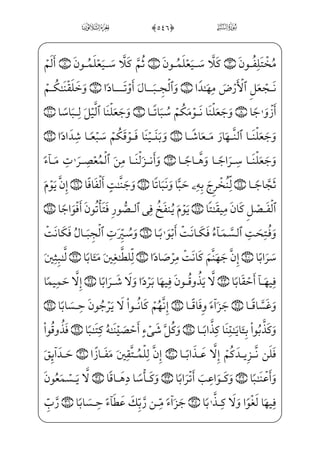 سُورَةُ النَّبَإِ ﴿٥٤٦﴾ الجُزْءُ الثَّلَاثُونَ
مُخْتَلِفُونَ ٣ كَلَّا سَيَعْلَمُونَ ٤ ثُمَّ كَلَّا سَيَعْلَمُونَ ٥ أَلَمْ
نَجْعَلِ ٱلْأَرْضَ مِهَٰدًا ٦ وَٱلْجِبَالَ أَوْتَادًا ٧ وَخَلَقْنَٰكُمْ
أَزْوَٰجًا ٨ وَجَعَلْنَا نَوْمَكُمْ سُبَاتًا ٩ وَجَعَلْنَا ٱلَّيْلَ لِبَاسًا ١٠
وَجَعَلْنَا ٱلنَّهَارَ مَعَاشًا ١١ وَبَنَيْنَا فَوْقَكُمْ سَبْعًا شِدَادًا ١٢
وَجَعَلْنَا سِرَاجًا وَهَّاجًا ١٣ وَأَنزَلْنَا مِنَ ٱلْمُعْصِرَٰتِ مَآءً
ثَجَّاجًا ١٤ لِّنُخْرِجَ بِهِۦ حَبًّا وَنَبَاتًا ١٥ وَجَنَّٰتٍ أَلْفَافًا ١٦ إِنَّ يَوْمَ
ٱلْفَصْلِ كَانَ مِيقَٰتًا ١٧ يَوْمَ يُنفَخُ فِى ٱلصُّورِ فَتَأْتُونَ أَفْوَاجًا ١٨
وَفُتِحَتِ ٱلسَّمَآءُ فَكَانَتْ أَبْوَٰبًا ١٩ وَسُيِّرَتِ ٱلْجِبَالُ فَكَانَتْ
سَرَابًا ٢٠ إِنَّ جَهَنَّمَ كَانَتْ مِرْصَادًا ٢١ لِّلطَّٰغِينَ مَـَٔابًا ٢٢ لَّٰبِثِينَ
فِيهَآ أَحْقَابًا ٢٣ لَّا يَذُوقُونَ فِيهَا بَرْدًا وَلَا شَرَابًا ٢٤ إِلَّا حَمِيمًا
وَغَسَّاقًا ٢٥ جَزَآءً وِفَاقًا ٢٦ إِنَّهُمْ كَانُوا۟ لَا يَرْجُونَ حِسَابًا ٢٧
وَكَذَّبُوا۟ بِـَٔايَٰتِنَا كِذَّابًا ٢٨ وَكُلَّ شَىْءٍ أَحْصَيْنَٰهُ كِتَٰبًا ٢٩ فَذُوقُوا۟
فَلَن نَّزِيدَكُمْ إِلَّا عَذَابًا ٣٠ إِنَّ لِلْمُتَّقِينَ مَفَازًا ٣١ حَدَآئِقَ
وَأَعْنَٰبًا ٣٢ وَكَوَاعِبَ أَتْرَابًا ٣٣ وَكَأْسًا دِهَاقًا ٣٤ لَّا يَسْمَعُونَ
فِيهَا لَغْوًا وَلَا كِذَّٰبًا ٣٥ جَزَآءً مِّن رَّبِّكَ عَطَآءً حِسَابًا ٣٦ رَّبِّ